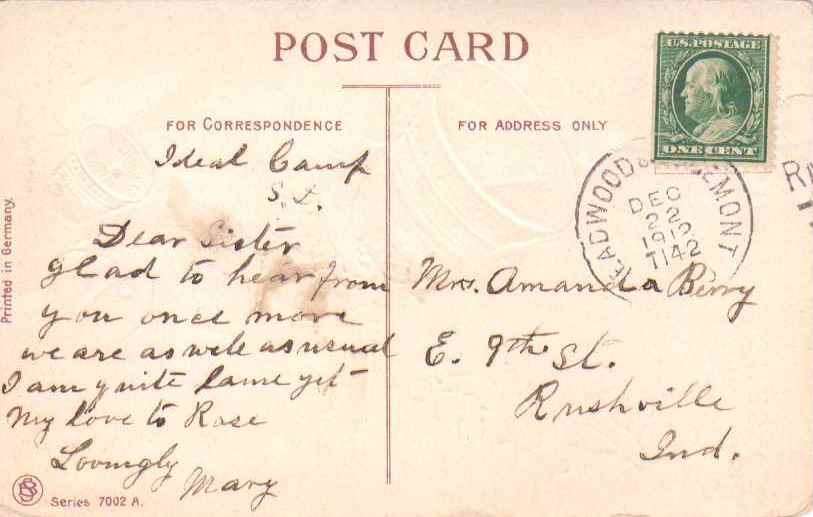 POST CARD
U.S. POSTAGE
ONE CENT
FOR CORRESPONDENCE
FOR ADDRESS ONLY
EADWOOD & EMONT
DEC
22
T142
R
Ideal Camp
Dear Sister
glad to hear from
you once more
we are as well as usual
I am quite lame yet
My love to Rose
Lovingly
Mary
Mrs. Amanda Berry
E. 9th St.
Rushville
Ind.
Printed in Germany.
Series 7002 A.